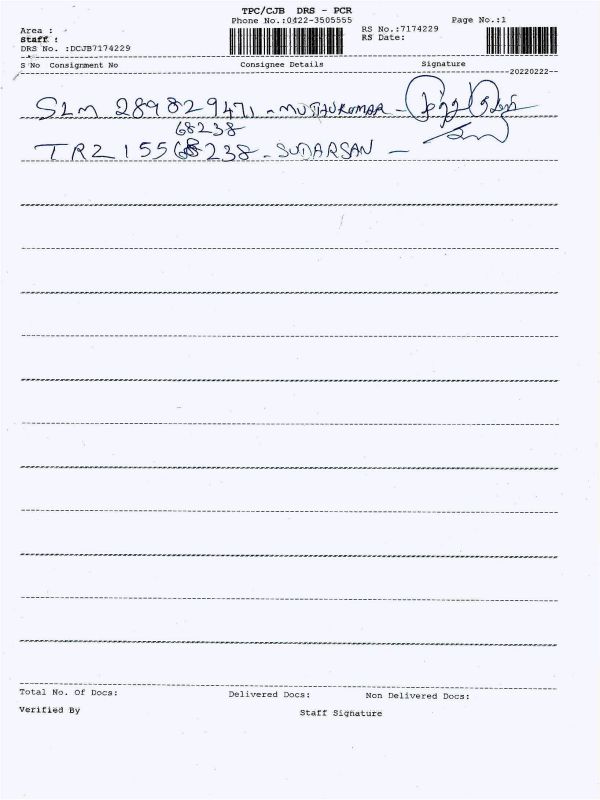 TPC/CJB DRS - PCR
Phone No.:0422-3505555 Page No.:1
Area : RS No.:7174229
Staff : RS Date:
DRS No. :DCJB7174229
S No Consignment No Consignee Details Signature
20220222
SLM 289829471 - MUTHUKUMAR - முத்துகுமார்
68238
TRZ 15568238 - SUDARSAN -
Total No. Of Docs: Delivered Docs: Non Delivered Docs:
Verified By Staff Signature